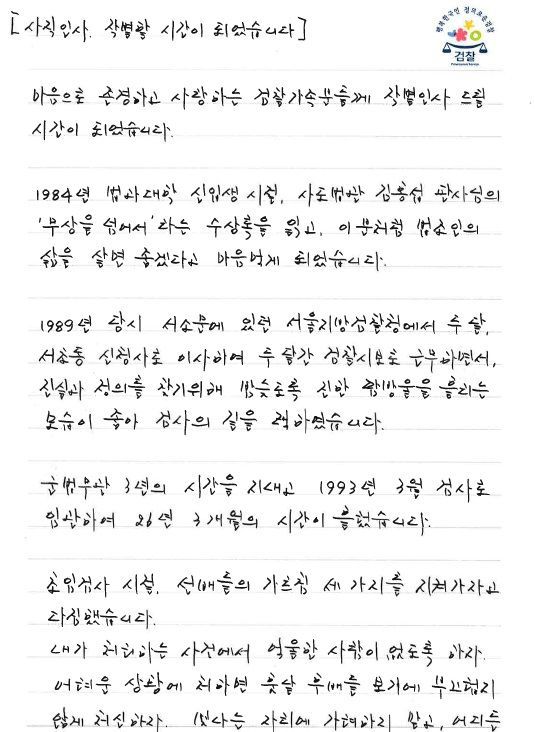 [사직인사. 작별할 시간이 되었습니다]
검찰
마음으로 존경하고 사랑하는 검찰가족분들께 작별인사 드릴
시간이 되었습니다.
1984년 법과대학 신입생 시절, 사도법관 김홍섭 판사님의
'무상을 넘어서'라는 수상록을 읽고, 이분처럼 법조인의
삶을 살면 좋겠다고 마음먹게 되었습니다.
1989년 당시 서소문에 있던 서울지방검찰청에서 두 달,
서초동 신청사로 이사하여 두 달간 검찰시보로 근무하면서,
진실과 정의를 찾기위해 밤늦도록 진한 땀방울을 흘리는
모습이 좋아 검사의 길을 택하였습니다.
군법무관 3년의 시간을 지내고 1993년 3월 검사로
임관하여 26년 3개월의 시간이 흘렀습니다.
초임검사 시절, 선배들의 가르침 세 가지를 지켜가자고
다짐했습니다.
내가 처리하는 사건에서 억울한 사람이 없도록 하자.
어려운 상황에 처하면 훗날 후배들 보기에 부끄럽지
않게 처신하자. 빛나는 자리에 가려하지 말고, 어디든